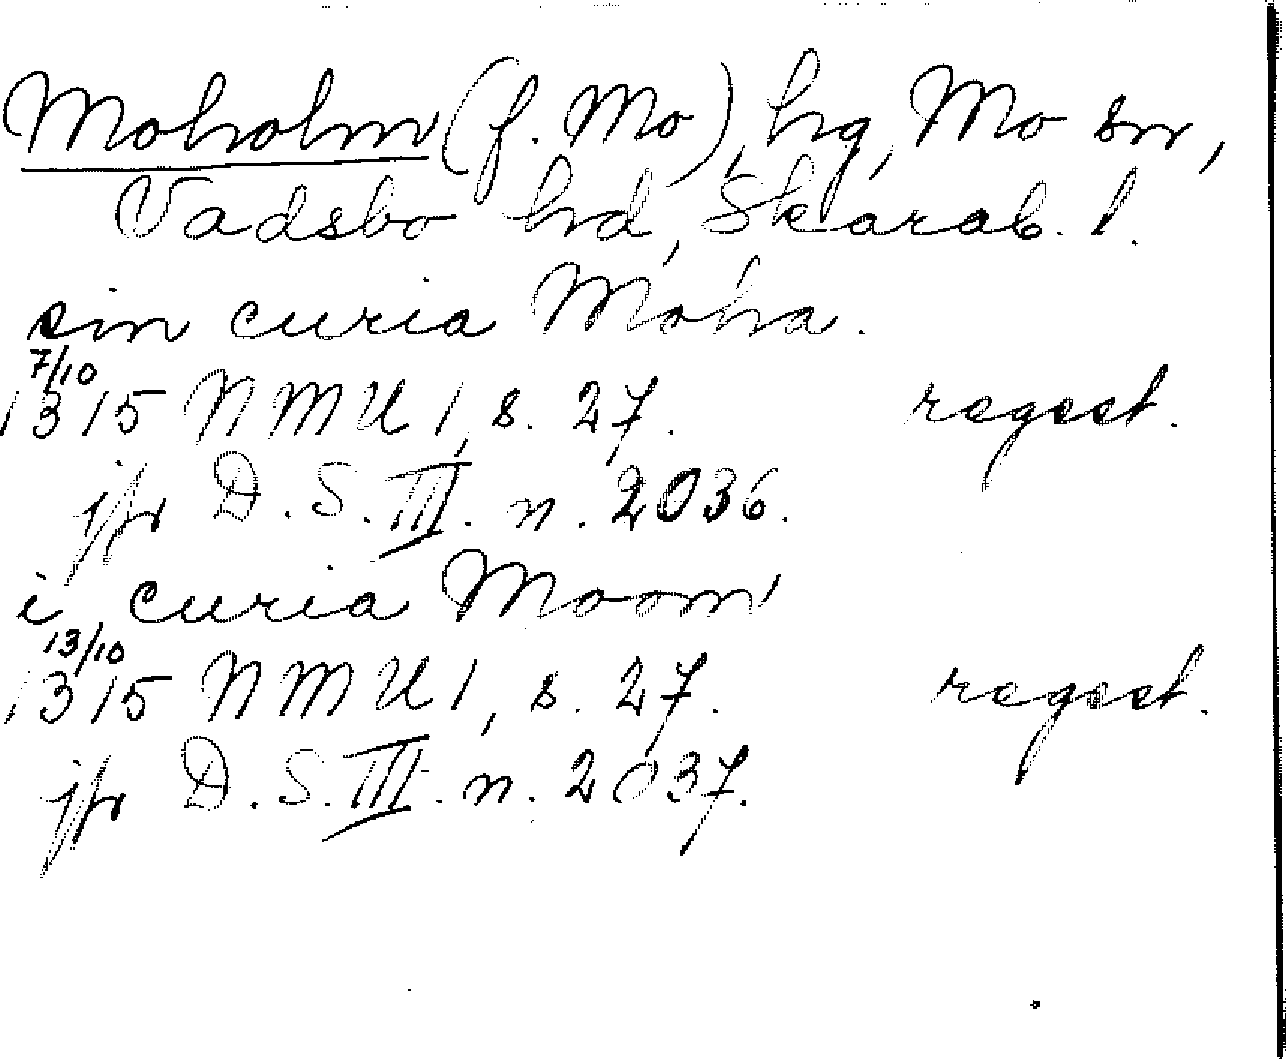 Moholm (f. Mo), hg, Mo sn,
Vadsbo hd, Skarab. l.
sin curia Moha.
7/10
1315 NMU 1, s. 27. regest.
jfr D. S. III. n. 2036.
i curia Moom
13/10
1315 NMU 1, s. 27. regest.
jfr D. S. III. n. 2037.